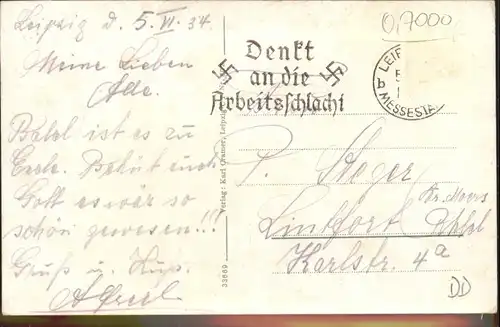 Leipzig d. 5. VI. 34
Meine Lieben
Alle.
Bald ist es zu
Ende. Behüt euch
Gott es wär so
schön gewesen!!!
Gruß u. Kuss.
0,7000
Denkt
an die
Arbeitsschlacht
LEIP
b MESSESTA
Verlag: Karl Cramer, Leipzig
33669
Steger
Lintfort
Kr. Moers
Karlstr. 4a
DD